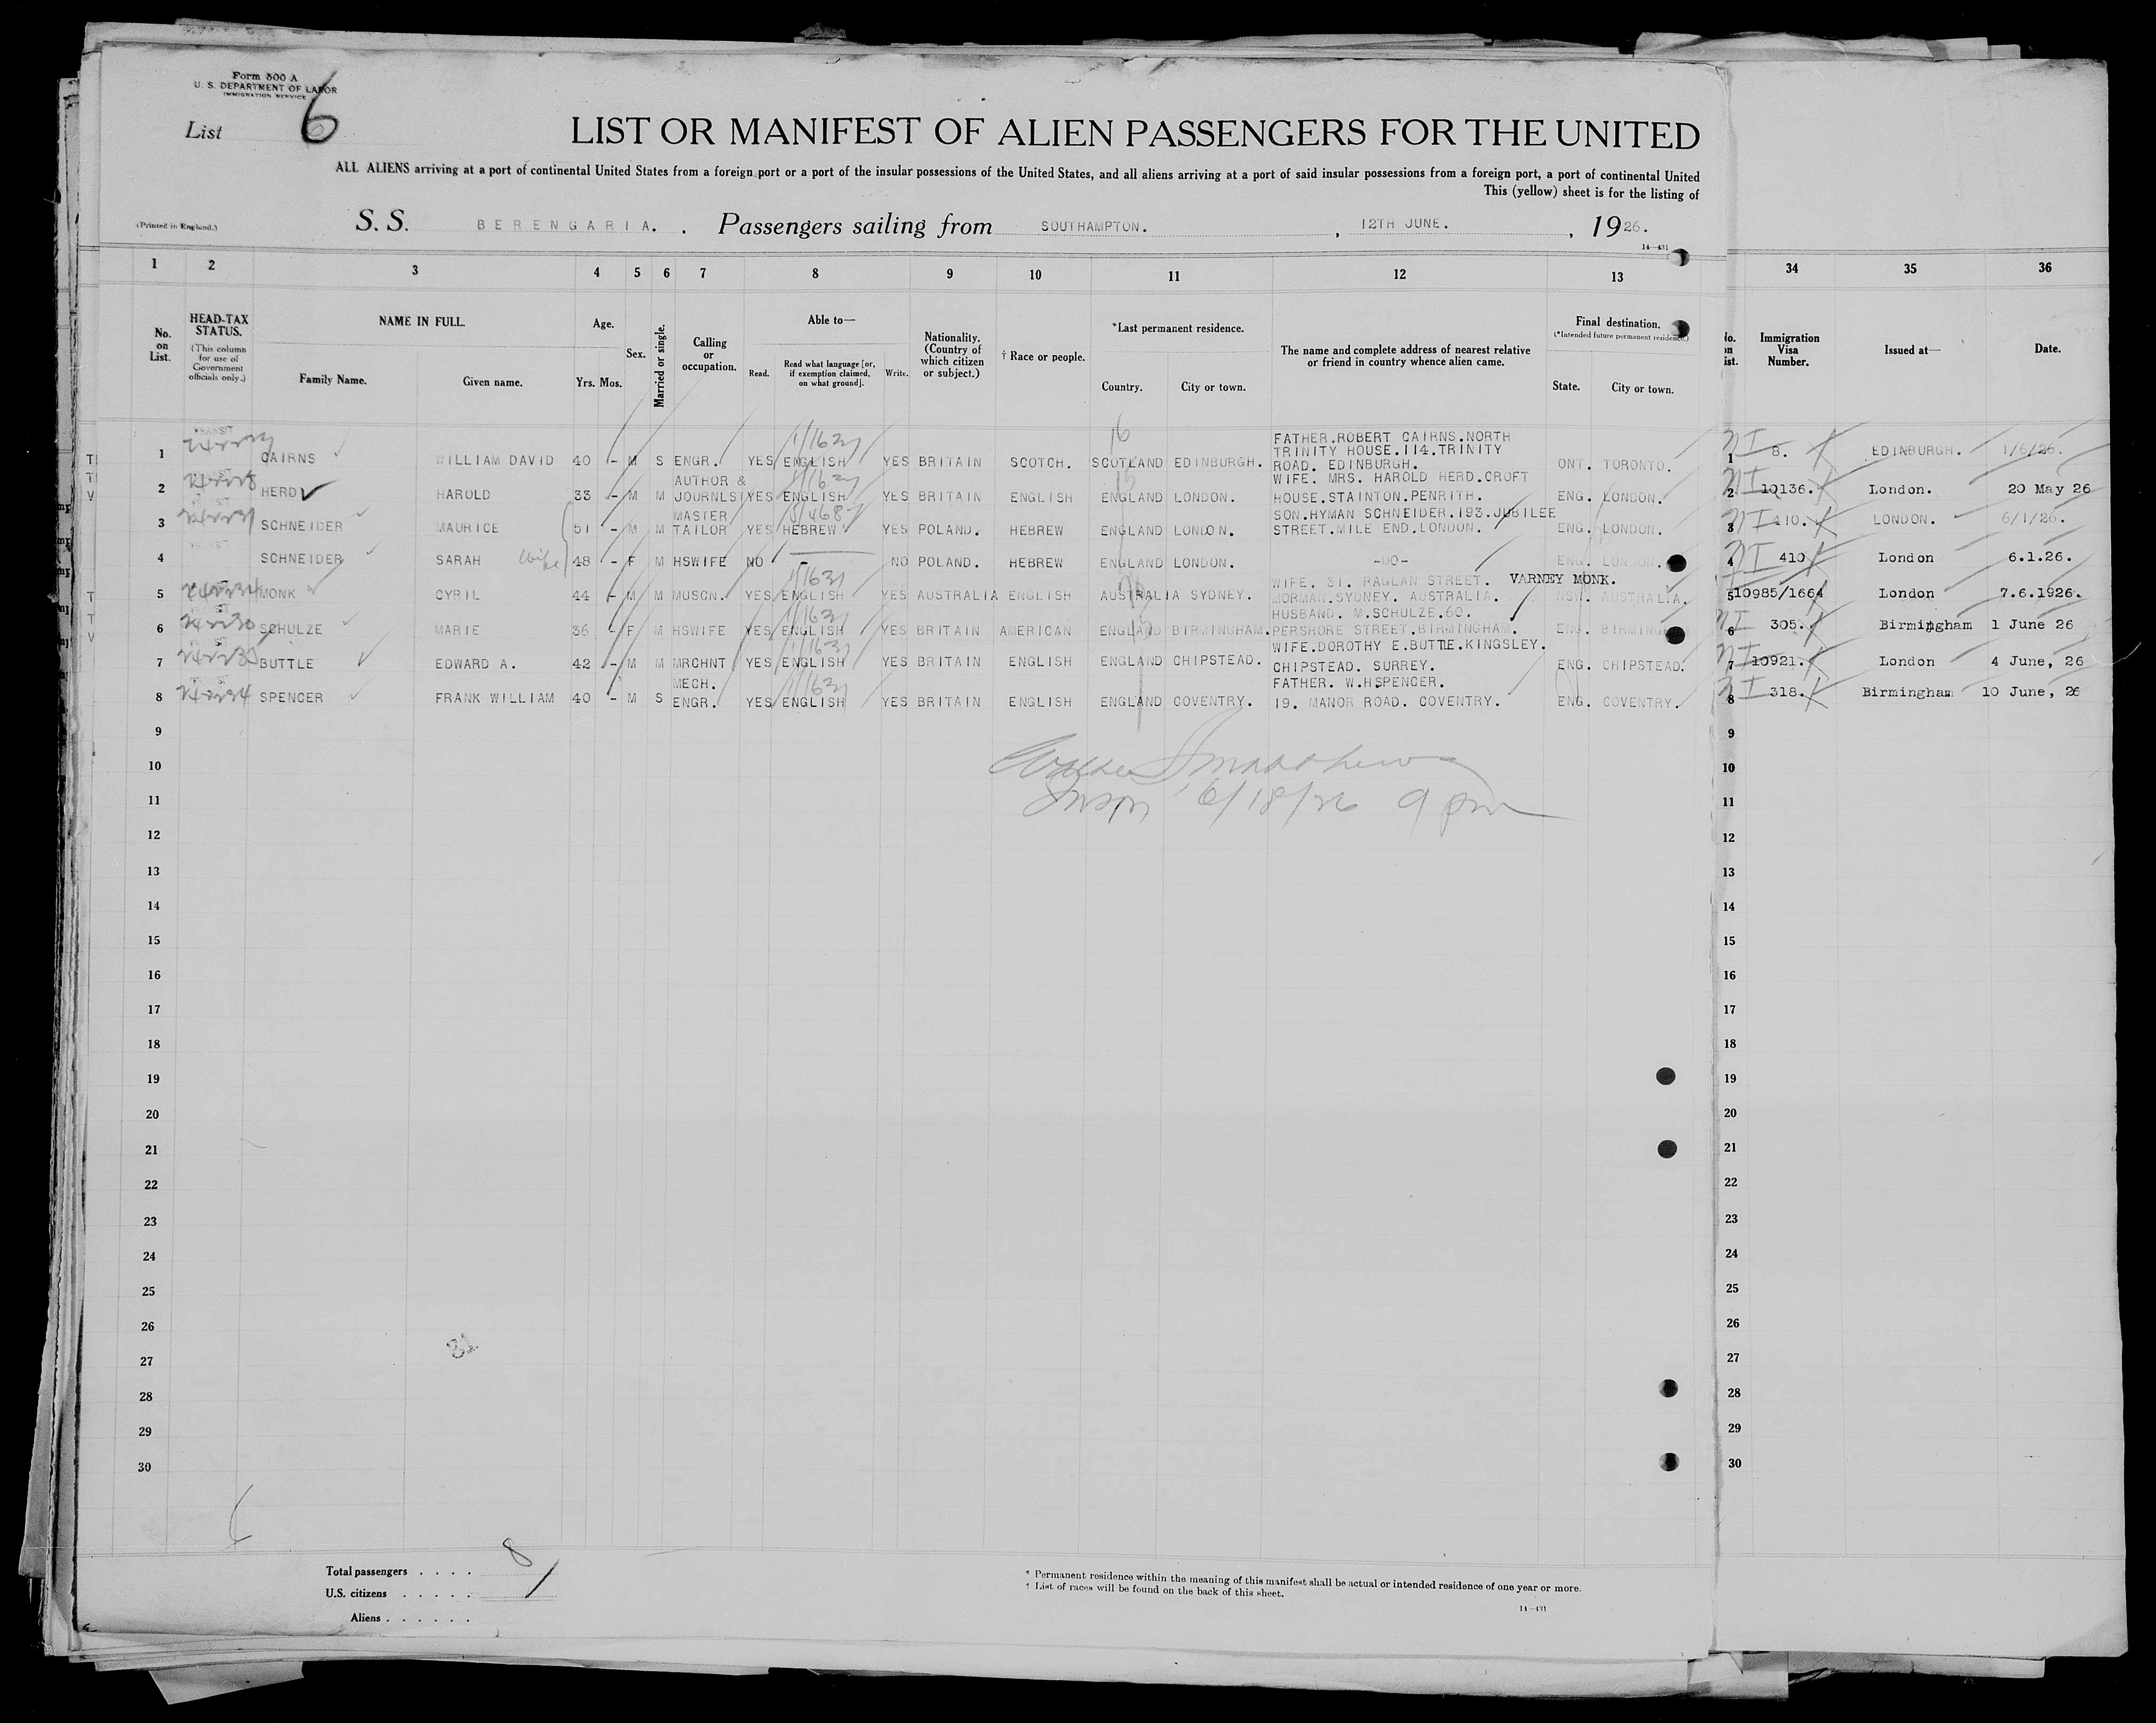 Form 500 A
U. S. DEPARTMENT OF LABOR
IMMIGRATION SERVICE
List 6
LIST OR MANIFEST OF ALIEN PASSENGERS FOR THE UNITED
ALL ALIENS arriving at a port of continental United States from a foreign port or a port of the insular possessions of the United States, and all aliens arriving at a port of said insular possessions from a foreign port, a port of continental United
This (yellow) sheet is for the listing of
(Printed in England.)
S. S. BERENGARIA. . Passengers sailing from SOUTHAMPTON. , 12TH JUNE. , 1926.
14—431
1 2 3 4 5 6 7 8 9 10 11 12 13 34 35 36
No. on List.
HEAD-TAX STATUS.
(This column for use of Government officials only.)
NAME IN FULL.
Family Name. Given name.
Age.
Yrs. Mos.
Sex.
Married or single.
Calling or occupation.
Able to—
Read. Read what language [or, if exemption claimed, on what ground]. Write.
Nationality. (Country of which citizen or subject.)
† Race or people.
*Last permanent residence.
Country. City or town.
The name and complete address of nearest relative or friend in country whence alien came.
Final destination.
(*Intended future permanent residence.)
State. City or town.
Immigration Visa Number.
Issued at—
Date.
1 CAIRNS WILLIAM DAVID 40 - M S ENGR. YES ENGLISH YES BRITAIN SCOTCH. SCOTLAND EDINBURGH. FATHER.ROBERT CAIRNS.NORTH TRINITY HOUSE.114.TRINITY ROAD. EDINBURGH. ONT. TORONTO. 1 8. EDINBURGH. 1/6/26.
2 HERD HAROLD 33 - M M AUTHOR & JOURNLST YES ENGLISH YES BRITAIN ENGLISH ENGLAND LONDON. WIFE. MRS. HAROLD HERD.CROFT HOUSE.STAINTON.PENRITH. ENG. LONDON. 2 10136. London. 20 May 26
3 SCHNEIDER MAURICE 51 - M M MASTER TAILOR YES HEBREW YES POLAND. HEBREW ENGLAND LONDON. SON.HYMAN SCHNEIDER.193.JUBILEE STREET.MILE END.LONDON. ENG. LONDON. 3 410. LONDON. 6/1/26.
4 SCHNEIDER SARAH wife 48 - F M HSWIFE NO - NO POLAND. HEBREW ENGLAND LONDON. -DO- ENG. LONDON. 4 410 London 6.1.26.
5 MONK CYRIL 44 - M M MUSCN. YES ENGLISH YES AUSTRALIA ENGLISH AUSTRALIA SYDNEY. WIFE. 31. RAGLAN STREET. VARNEY MONK. MORMAN.SYDNEY. AUSTRALIA. NSW. AUSTRALIA. 5 10985/1664 London 7.6.1926.
6 SCHULZE MARIE 36 - F M HSWIFE YES ENGLISH YES BRITAIN AMERICAN ENGLAND BIRMINGHAM. HUSBAND. M.SCHULZE.60. PERSHORE STREET.BIRMINGHAM. ENG. 6 305. Birmingham 1 June 26
7 BUTTLE EDWARD A. 42 - M M MRCHNT YES ENGLISH YES BRITAIN ENGLISH ENGLAND CHIPSTEAD. WIFE.DOROTHY E.BUTTLE.KINGSLEY. CHIPSTEAD. SURREY. ENG. CHIPSTEAD. 7 10921. London 4 June, 26
8 SPENCER FRANK WILLIAM 40 - M S MECH. ENGR. YES ENGLISH YES BRITAIN ENGLISH ENGLAND COVENTRY. FATHER. W.HSPENCER. 19. MANOR ROAD. COVENTRY. ENG. COVENTRY. 8 318. Birmingham 10 June, 26
9 9
10 10
6/18/26 9 pm
11 11
12 12
13 13
14 14
15 15
16 16
17 17
18 18
19 19
20 20
21 21
22 22
23 23
24 24
25 25
26 26
27 27
28 28
29 29
30 30
Total passengers . . . . 8
U.S. citizens . . . . .
Aliens . . . . . .
* Permanent residence within the meaning of this manifest shall be actual or intended residence of one year or more.
† List of races will be found on the back of this sheet.
14—431